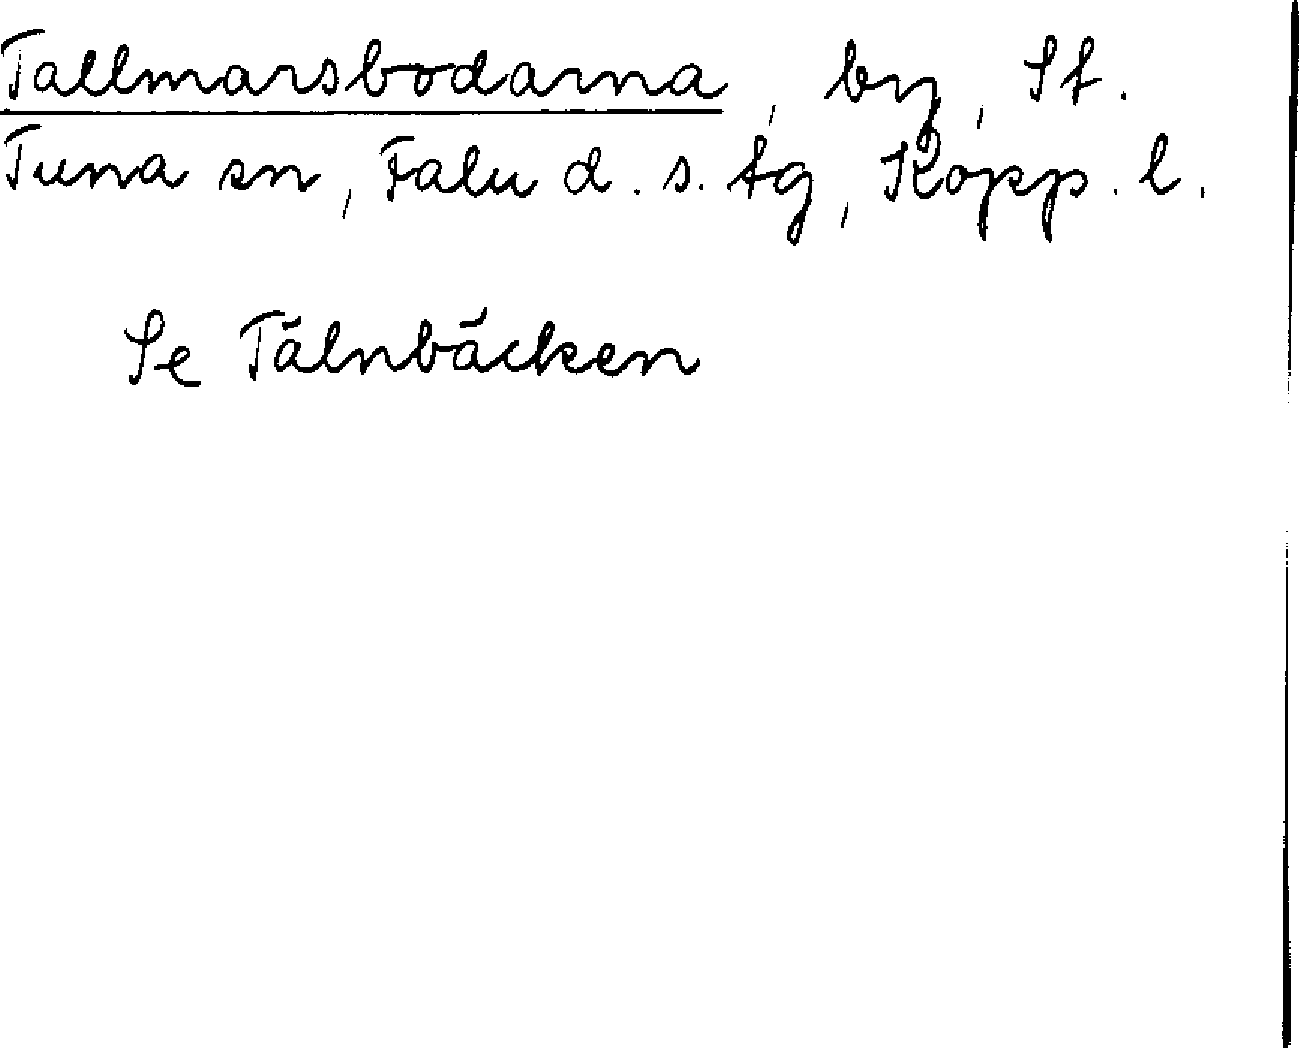 Tallmarsbodarna, by, St.
Tuna sn, Falu d. s. tg, Kopp. l.
Se Tälnbäcken